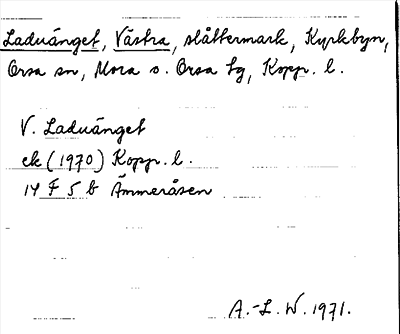 Laduänget, Västra, slåttermark, Kyrkbyn,
Orsa sn, Mora o. Orsa tg, Kopp. l.
V. Laduänget
ek (1970) Kopp. l.
14 F 5 b Ämmeråsen
A.-L. W. 1971.